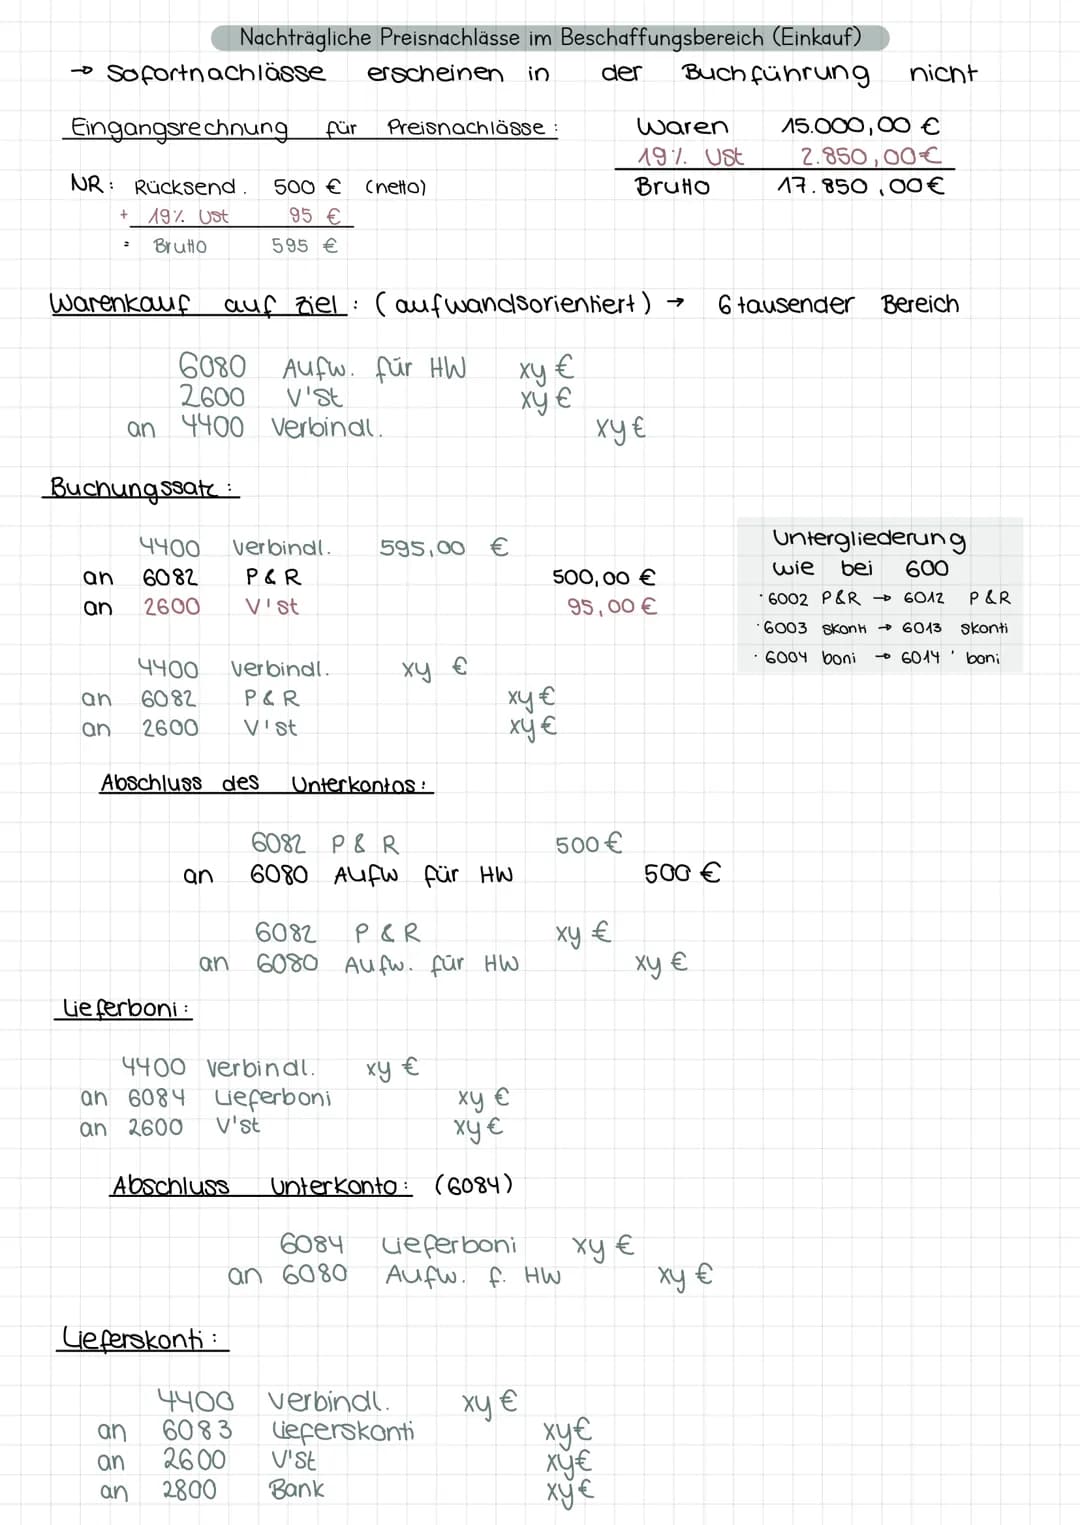 Nachträgliche Preisnachlässe im Beschaffungsbereich (Einkauf)
→ Sofortnachlässe erscheinen in der Buchführung nicht
Eingangsrechnung für Preisnachlässe:
Waren 15.000,00 €
19% USt 2.850,00€
Brutto 17.850,00€
NR: Rücksend. 500 € (netto)
+ 19% Ust 95 €
= Brutto 595 €
Warenkauf auf Ziel: (aufwandsorientiert) → 6 tausender Bereich
6080 Aufw. für HW xy €
2600 V'St xy €
an 4400 Verbindl. xy €
Buchungssatz:
4400 Verbindl. 595,00 €
an 6082 P & R 500,00 €
an 2600 V'st 95,00 €
Untergliederung
wie bei 600
· 6002 P&R → 6012 P&R
· 6003 skonti → 6013 skonti
· 6004 boni → 6014 ' boni
4400 Verbindl. xy €
an 6082 P & R xy €
an 2600 V'st xy €
Abschluss des Unterkontos:
6082 P & R 500 €
an 6080 Aufw für HW 500 €
6082 P & R xy €
an 6080 Aufw. für HW xy €
Lieferboni:
4400 Verbindl. xy €
an 6084 Lieferboni xy €
an 2600 V'st xy €
Abschluss Unterkonto: (6084)
6084 Lieferboni xy €
an 6080 Aufw. f. HW xy €
Lieferskonti:
4400 Verbindl. xy €
an 6083 Lieferskonti xy€
an 2600 V'St xy€
an 2800 Bank xy€